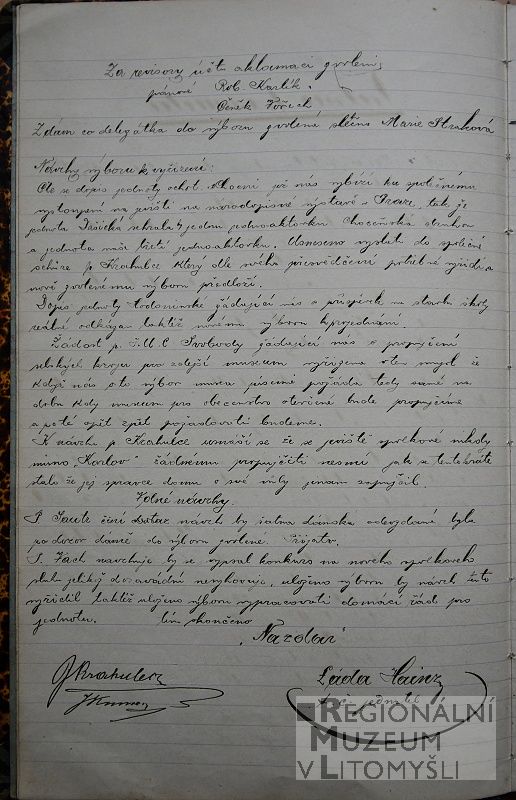 Za revisory účtů aklamací zvoleni,
pánové Rob. Karlík.
Čeněk Pořich
Z dám co delegátka do výboru zvolena slečna Marie Straková
Návrhy výboru k vyřízení:
Čte se dopis jednoty ochot. Choceni jež nás vybízí ku společnému
vystoupení na jevišti na národopisné výstavě v Praze, tak že
jednota sehrála jednu jednoaktovku Choceňská druhou
a jednota naše třetí jednoaktovku. Usneseno vyslati do společné
schůze p. Krahulce který dle svého přesvědčení potřebné vyjedná a
nově zvolenému výboru předloží.
Dopis jednoty žádající nás o příspěvek na stavbu školy
reálné odkázán taktéž novému výboru ku projednání.
Žádost p. Svobody žádající nás o propůjčení
krojů pro zdejší museum vyřízena v ten smysl že
když nás o to výbor musea písemně požádá tedy na
dobu kdy museum pro obecenstvo otevřené bude propůjčíme
a poté opět zpět požadovati budeme.
K návrhu p Krahulce usnáší se že se jeviště spolkové nikdy
mimo „Karlov" žádnému propůjčiti nesmí jak se tentokráte
stalo že jej správce domu o své vůli jinam zapůjčil.
Volné návrhy.
P. činí dotaz návrh by šatna dámská odevzdána byla
na dozor dámě do výboru zvolené. Přijato.
P. Fach navrhuje by se vypsal konkurs na nového spolkového
sluhu jelikož dosavadní nevyhovuje, uloženo výboru by návrh tuto
vyřídil taktéž uloženo výboru vypracovati domácí řád pro
jednotu. tím skončeno
„Nazdar"
J Krahulec
Láda Hainz
jednatel
REGIONÁLNÍ
MUZEUM
V LITOMYŠLI